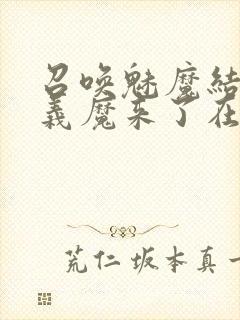 召唤魅魔结
義魔来了在
荒仁 坂本真一